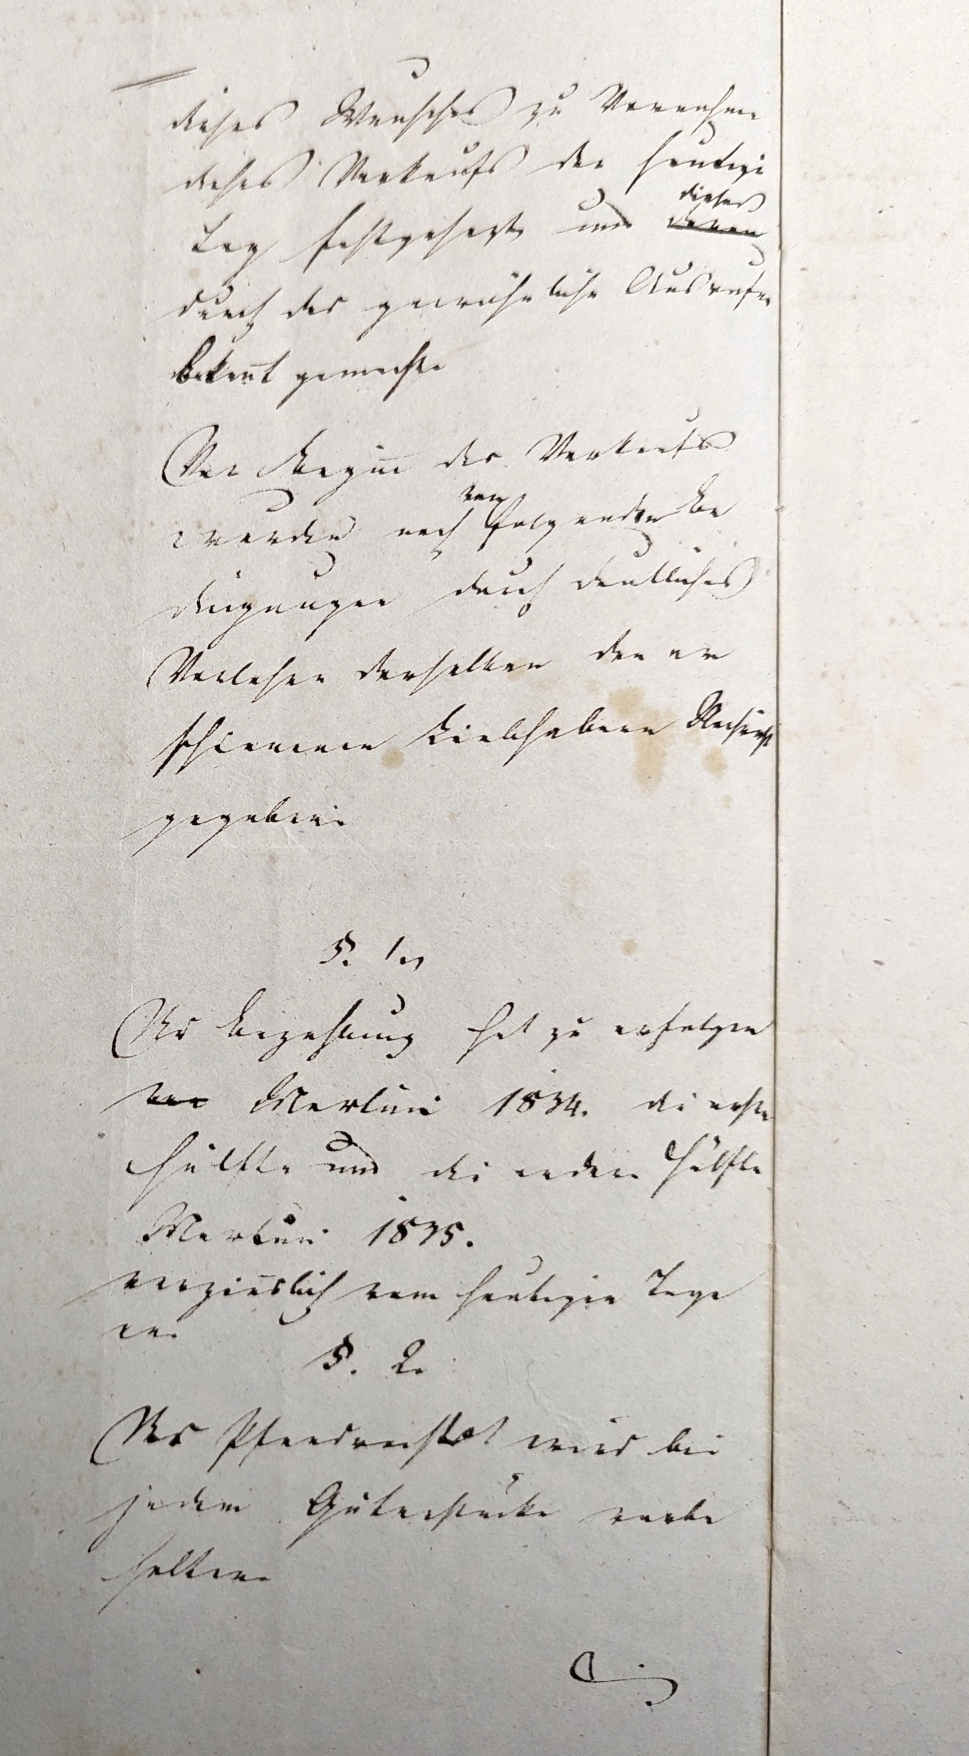 dieses Wunsches zu Vornahme
dieses Verkaufs der heutige
dieses
Tag festgesezt und deren
durch das gewöhnliche Ausrufen
bekannt gemacht.
Vor Begin des Verkaufs
von
wurden noch folgenden Be
dingungen durch deutliches
Verlesen derselben den er
schienenen Liebhabern Nachricht
gegeben.
§. 1.
Die Bezahlung hat zu erfolgen
Martini 1834. die erste
Hälfte und die andere Hälfte
Martini 1835.
verzinslich vom heutigen Tage
an.
§. 2.
Das Pfandrecht wird bei
jedem Güterstücke vorbe
halten.